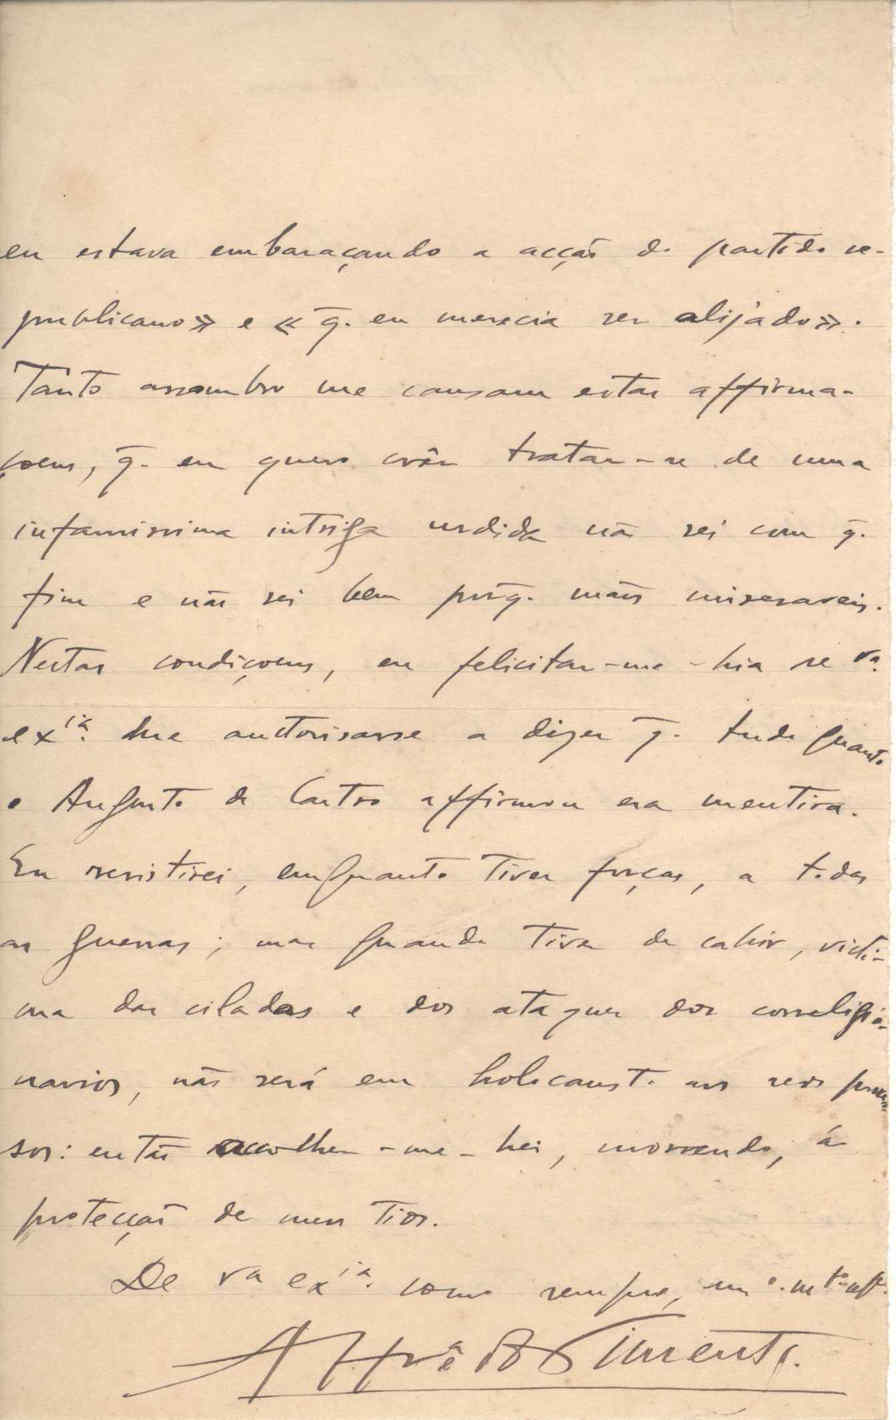 eu estava embaraçando a acção do partido re-
publicano» e « q̄. eu merecia ser alijado».
Tanto assombro me causam estas affirma-
çoens, q̄. eu quero crêr tratar-se de uma
infamissima intriga urdida não sei com q̄.
fim e não sei bem porq̄. mãos miseraveis.
Nestas condiçoens, eu felicitar-me-hia se va.
exia. me auctorisasse a dizer q̄. tudo quanto
o Augusto de Castro affirmou era mentira.
Eu resistirei, emquanto tiver forças, a todas
as guerras; mas quando tiver de cahir, victi-
ma das ciladas e dos ataques dos correligio-
narios, não será em holocausto aos seos
sos: então acolher-me-hei, morrendo, á
protecção de meus Tios.
De va exia. como sempre, mto.
Alfrêdo Pimenta.